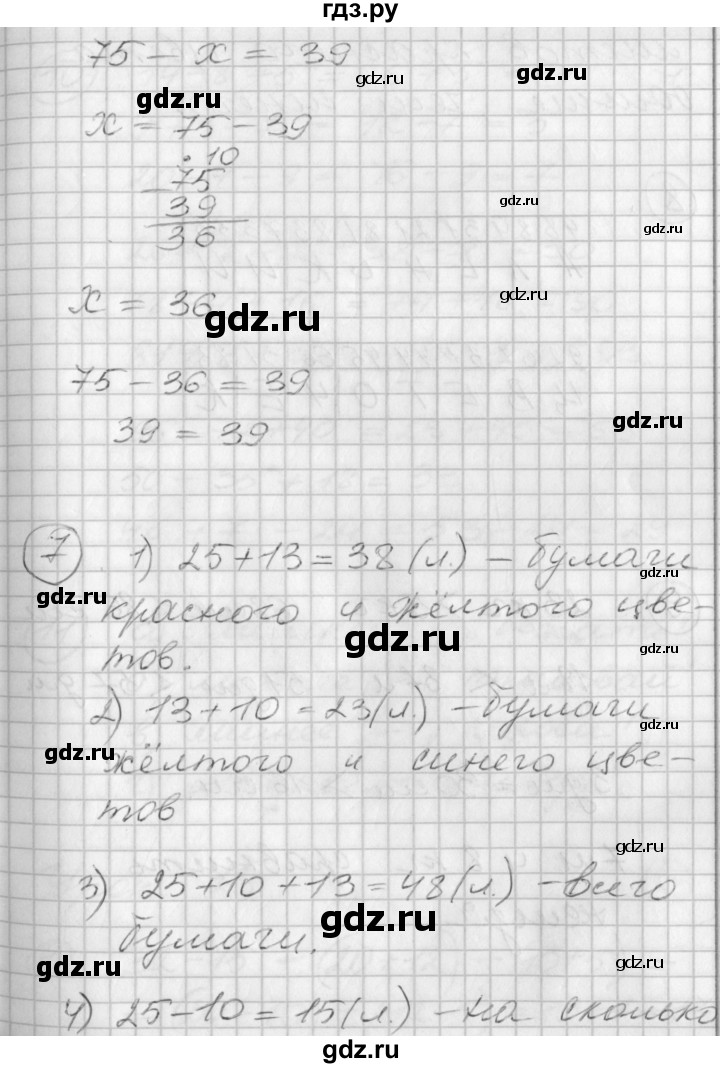 гдз.ру
75 - х = 39
gdz.ru
gdz.ru
gdz.ru
х = 75 - 39
. 10
- 75
39
36
gdz.ru
gdz.ru
gdz.ru
х = 36
gdz.ru
75 - 36 = 39
39 = 39
gdz.ru
7 1) 25 + 13 = 38 (л.) - бумаги
gdz.ru
gdz.ru
красного и жёлтого цве-
gdz.ru
gdz.ru
тов.
2) 13 + 10 = 23 (л.) - бумаги
gdz.ru
gdz.ru
жёлтого и синего цве-
тов
gdz.ru
3) 25 + 10 + 13 = 48 (л.) - всего
gdz.ru
бумаги.
gdz.ru
gdz.ru
4) 25 - 10 = 15 (л.) - на сколько
gdz.ru